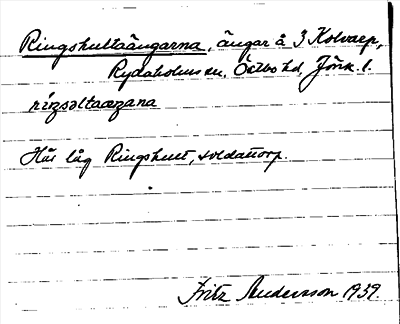 Ringshultaängarna, ängar å 3 Kolvarp,
Rydaholms sn, Östbo hd, Jönk. l.
ríŋsəltaæŋana
Här låg Ringshult, soldattorp.
Fritz Andersson 1939.